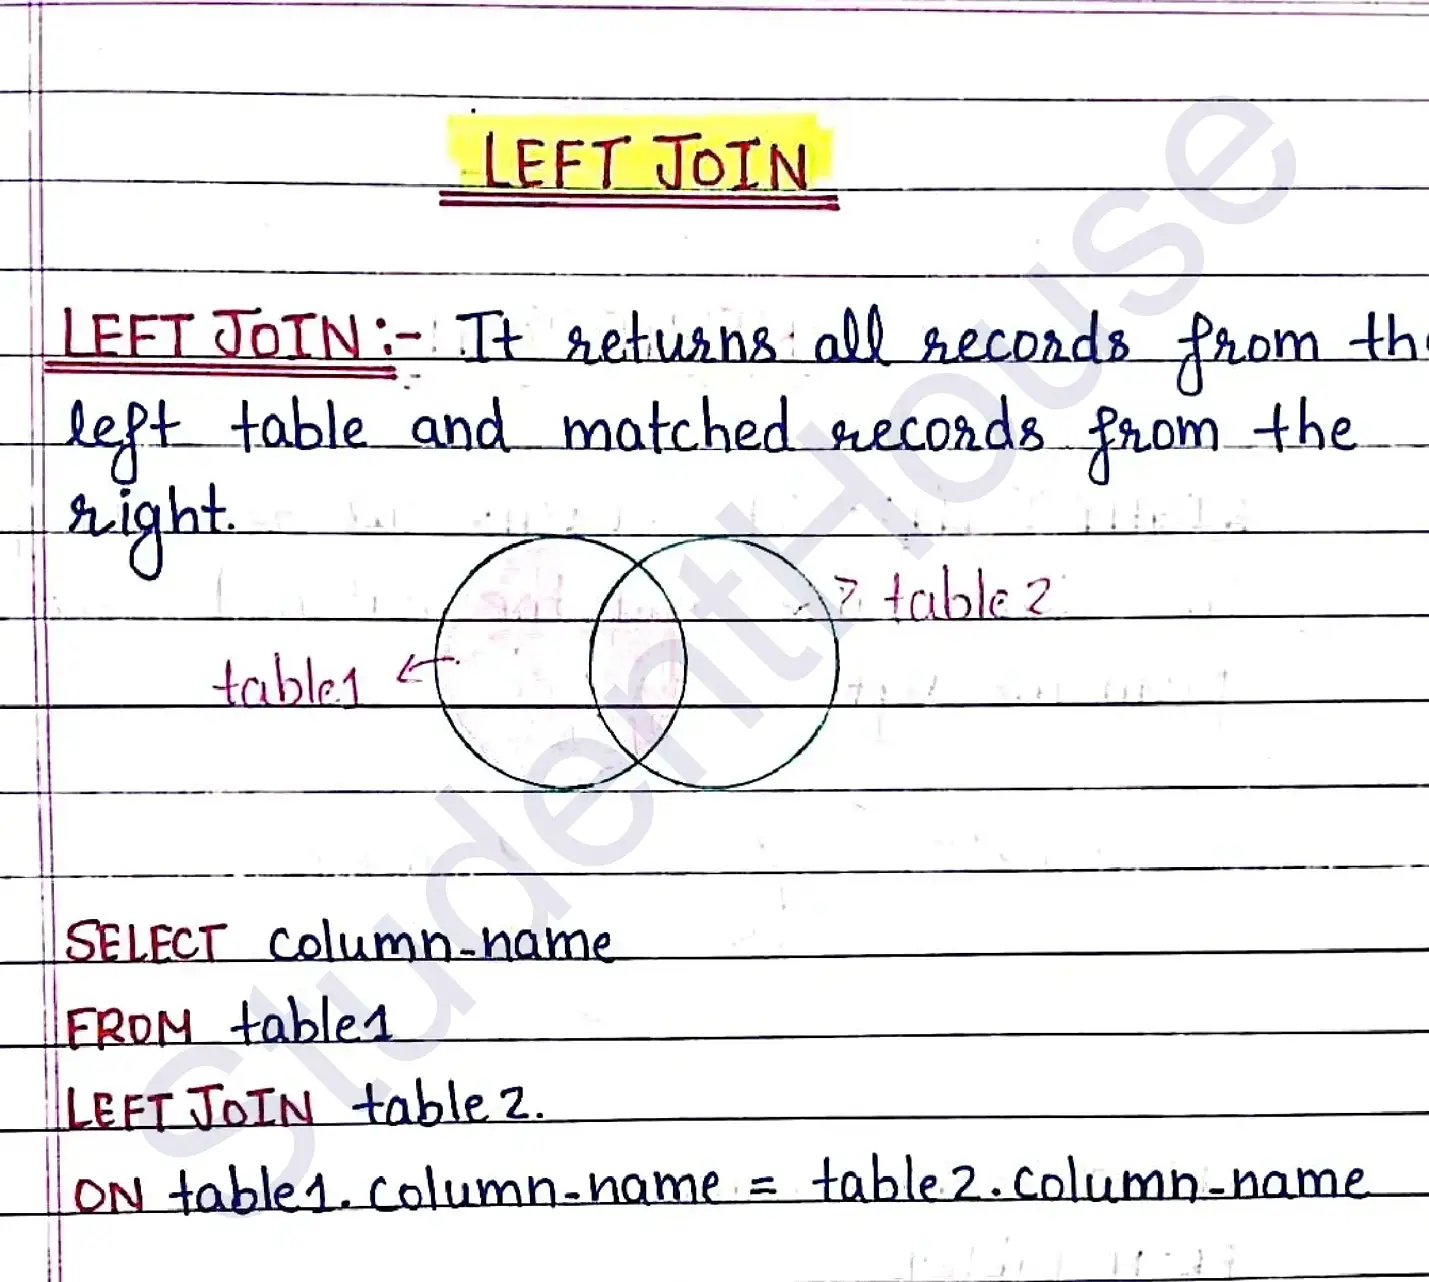 LEFT JOIN
LEFT JOIN :- It returns all records from th
left table and matched records from the
right.
table 2
table1
SELECT column-name
FROM table1
LEFT JOIN table 2.
ON table1.column-name = table2.column-name
StudentHouse